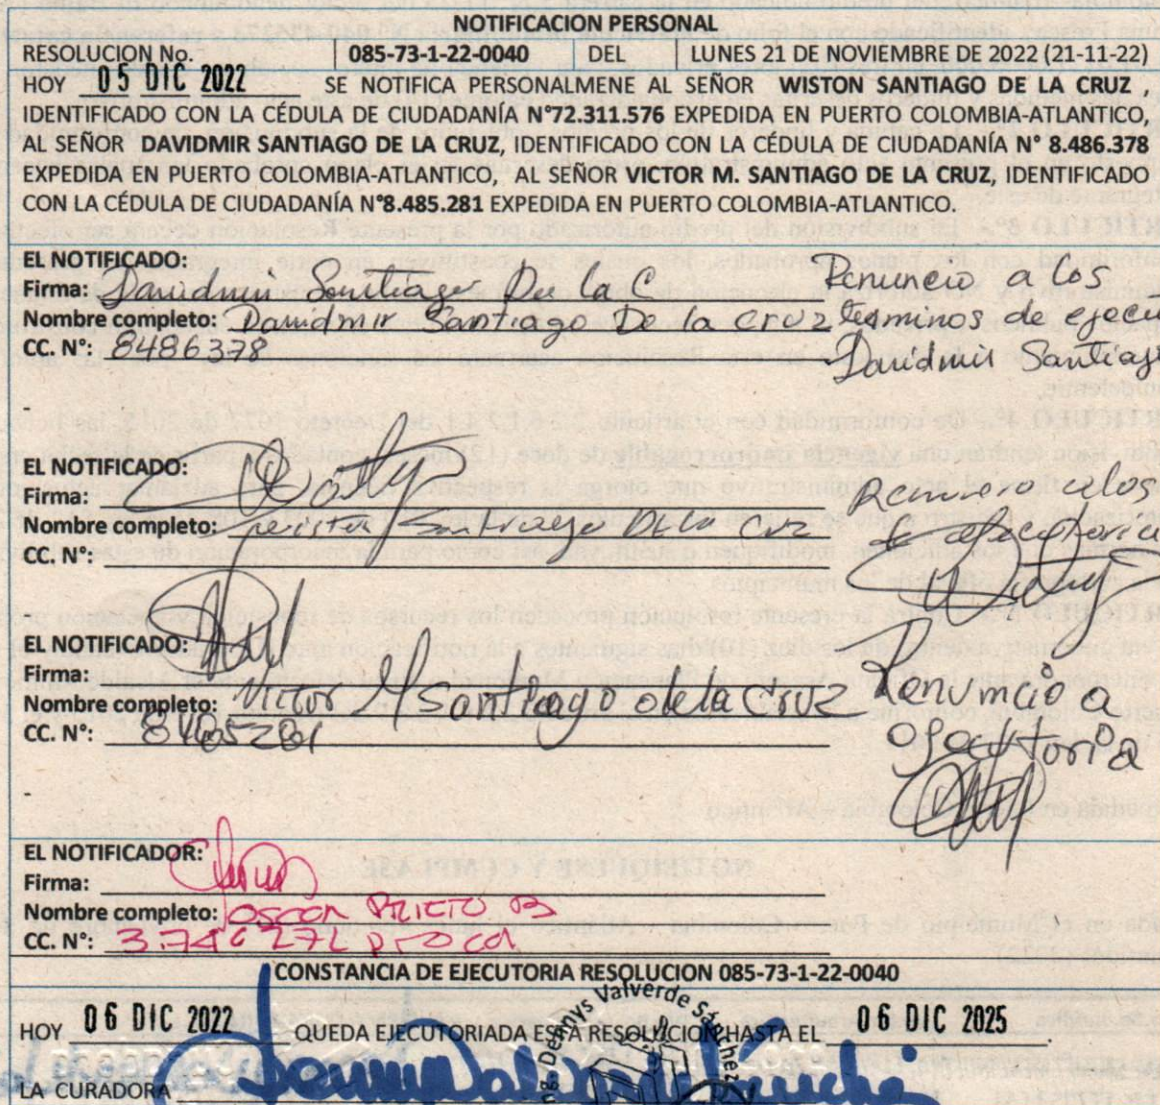 NOTIFICACION PERSONAL
RESOLUCION No. 085-73-1-22-0040 DEL LUNES 21 DE NOVIEMBRE DE 2022 (21-11-22)
HOY 05 DIC 2022 SE NOTIFICA PERSONALMENE AL SEÑOR WISTON SANTIAGO DE LA CRUZ ,
IDENTIFICADO CON LA CÉDULA DE CIUDADANÍA N°72.311.576 EXPEDIDA EN PUERTO COLOMBIA-ATLANTICO,
AL SEÑOR DAVIDMIR SANTIAGO DE LA CRUZ, IDENTIFICADO CON LA CÉDULA DE CIUDADANÍA N° 8.486.378
EXPEDIDA EN PUERTO COLOMBIA-ATLANTICO, AL SEÑOR VICTOR M. SANTIAGO DE LA CRUZ, IDENTIFICADO
CON LA CÉDULA DE CIUDADANÍA N°8.485.281 EXPEDIDA EN PUERTO COLOMBIA-ATLANTICO.
EL NOTIFICADO:
Firma: Davidmir Santiago De la C Renuncio a los
Nombre completo: Davidmir Santiago De la cruz terminos de ejecu
CC. N°: 8486378 Davidmir Santiago
EL NOTIFICADO:
Firma:
Nombre completo: Santiago De La Cruz
CC. N°:
EL NOTIFICADO:
Firma: Renuncio a
Nombre completo: Victor M Santiago de la cruz
CC. N°: 8485281
EL NOTIFICADOR:
Firma:
Nombre completo: OSCAR PRIETO
CC. N°: PTO COL
CONSTANCIA DE EJECUTORIA RESOLUCION 085-73-1-22-0040
HOY 06 DIC 2022 QUEDA EJECUTORIADA ESTA RESOLUCION HASTA EL 06 DIC 2025
Ing. Dennys Valverde Sánchez
LA CURADORA